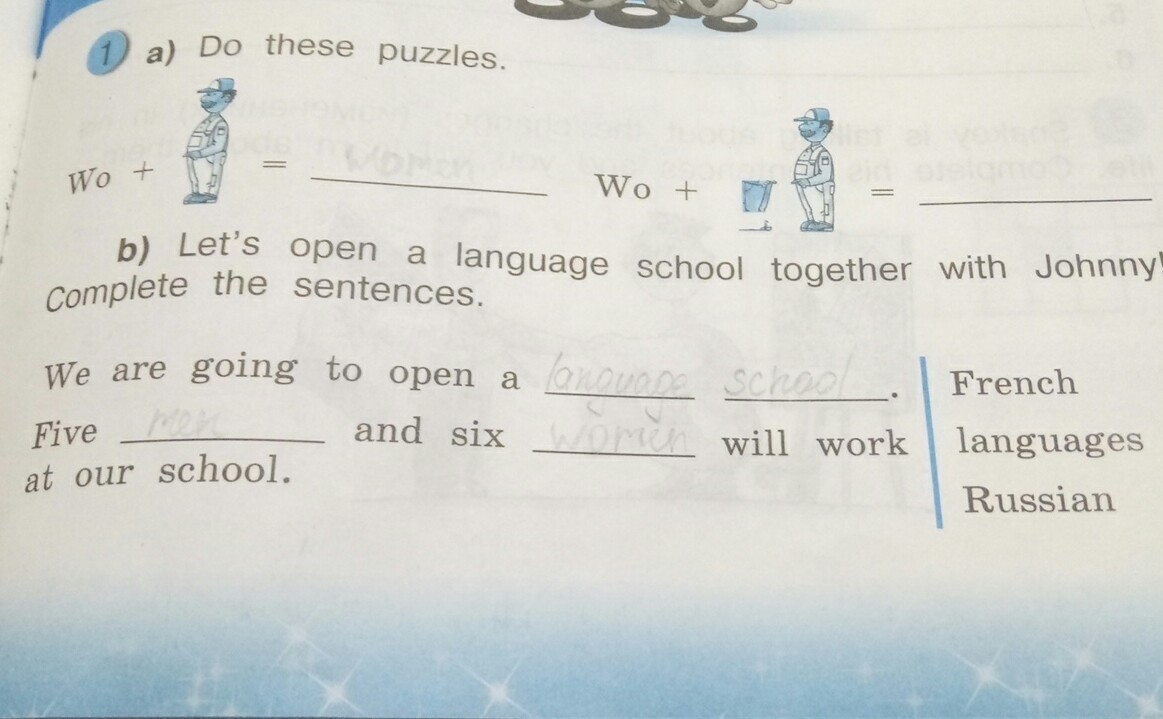 1 a) Do these puzzles.
Wo + = women Wo + =
b) Let's open a language school together with Johnny!
Complete the sentences.
We are going to open a language school.
Five men and six women will work
at our school.
French
languages
Russian